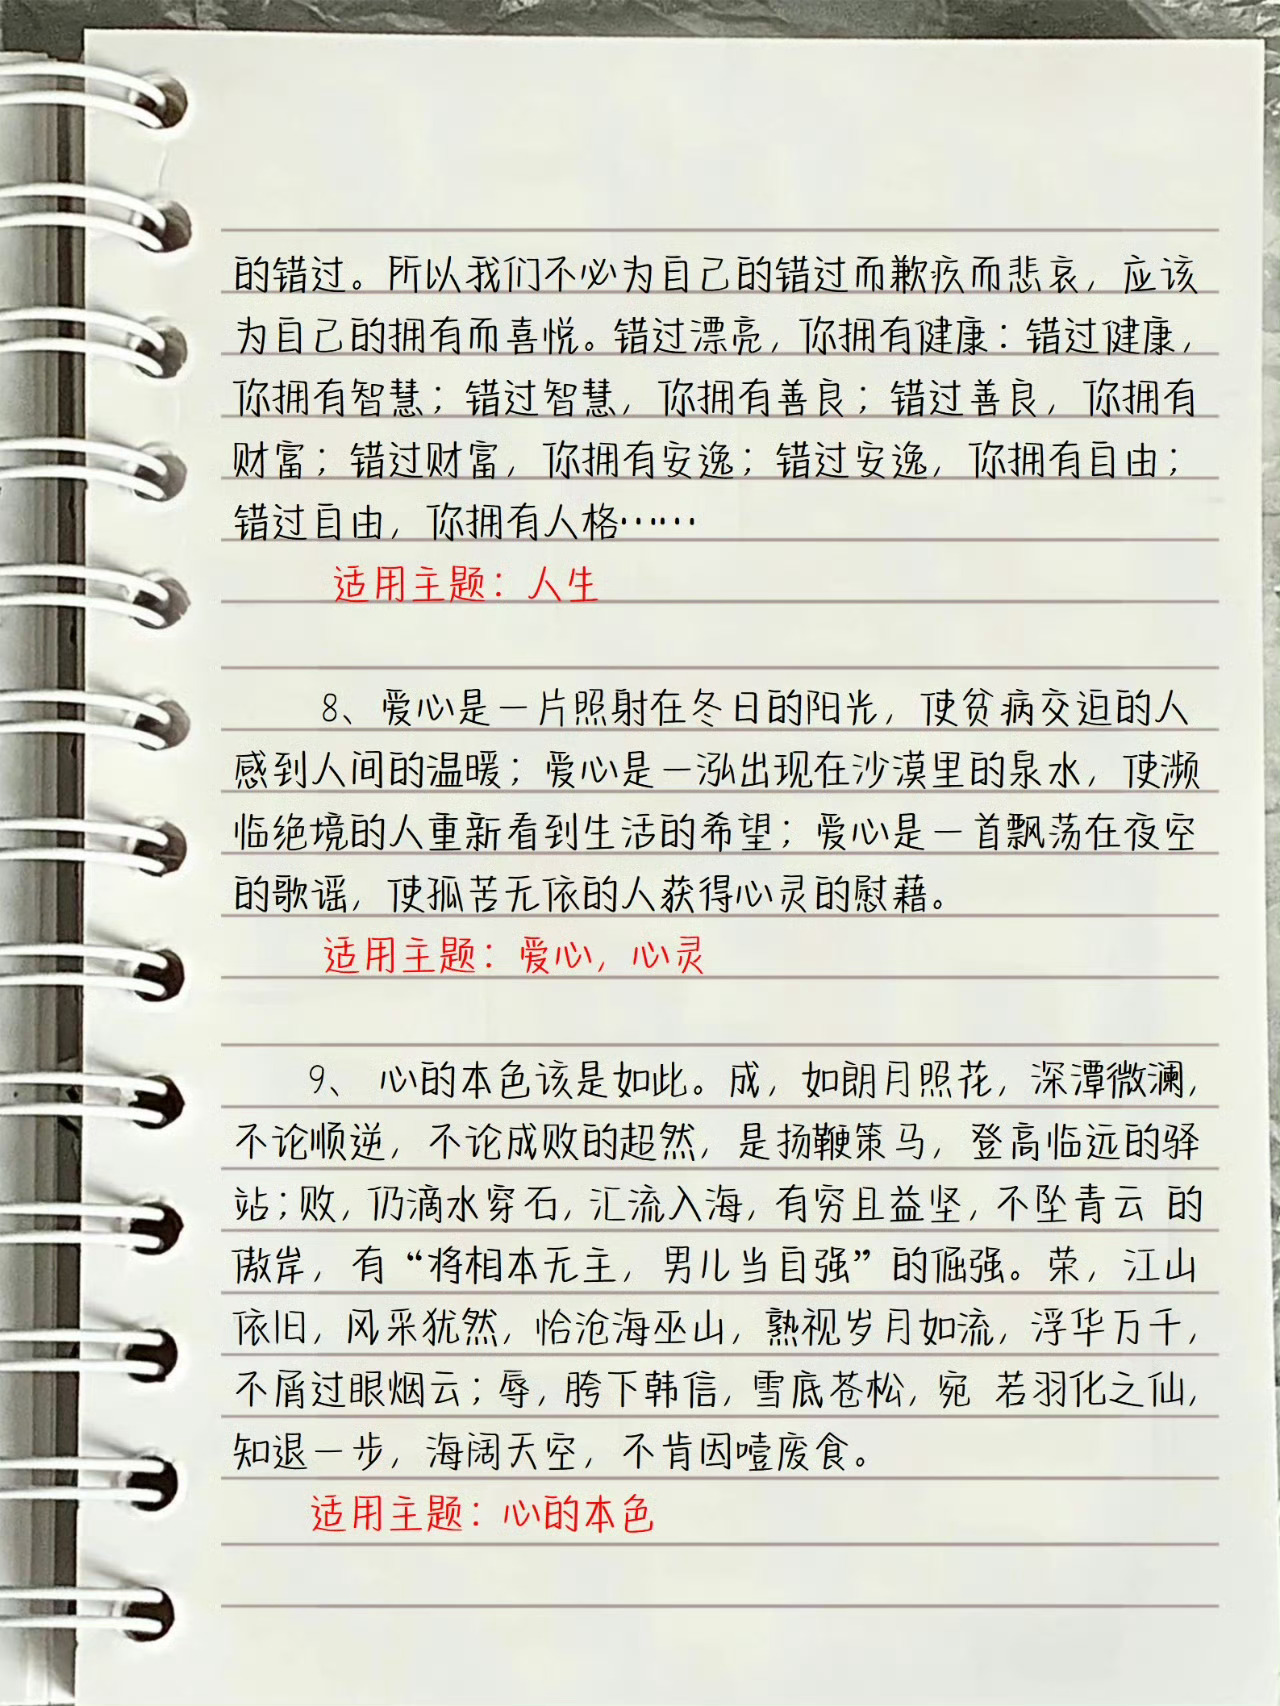 的错过。所以我们不必为自己的错过而歉疚而悲哀，应该
为自己的拥有而喜悦。错过漂亮，你拥有健康：错过健康，
你拥有智慧；错过智慧，你拥有善良；错过善良，你拥有
财富；错过财富，你拥有安逸；错过安逸，你拥有自由；
错过自由，你拥有人格……
适用主题：人生
8、爱心是一片照射在冬日的阳光，使贫病交迫的人
感到人间的温暖；爱心是一泓出现在沙漠里的泉水，使濒
临绝境的人重新看到生活的希望；爱心是一首飘荡在夜空
的歌谣，使孤苦无依的人获得心灵的慰藉。
适用主题：爱心，心灵
9、 心的本色该是如此。成，如朗月照花，深潭微澜，
不论顺逆，不论成败的超然，是扬鞭策马，登高临远的驿
站；败，仍滴水穿石，汇流入海，有穷且益坚，不坠青云 的
傲岸，有“将相本无主，男儿当自强”的倔强。荣，江山
依旧，风采犹然，恰沧海巫山，熟视岁月如流，浮华万千，
不屑过眼烟云；辱，胯下韩信，雪底苍松，宛 若羽化之仙，
知退一步，海阔天空，不肯因噎废食。
适用主题：心的本色